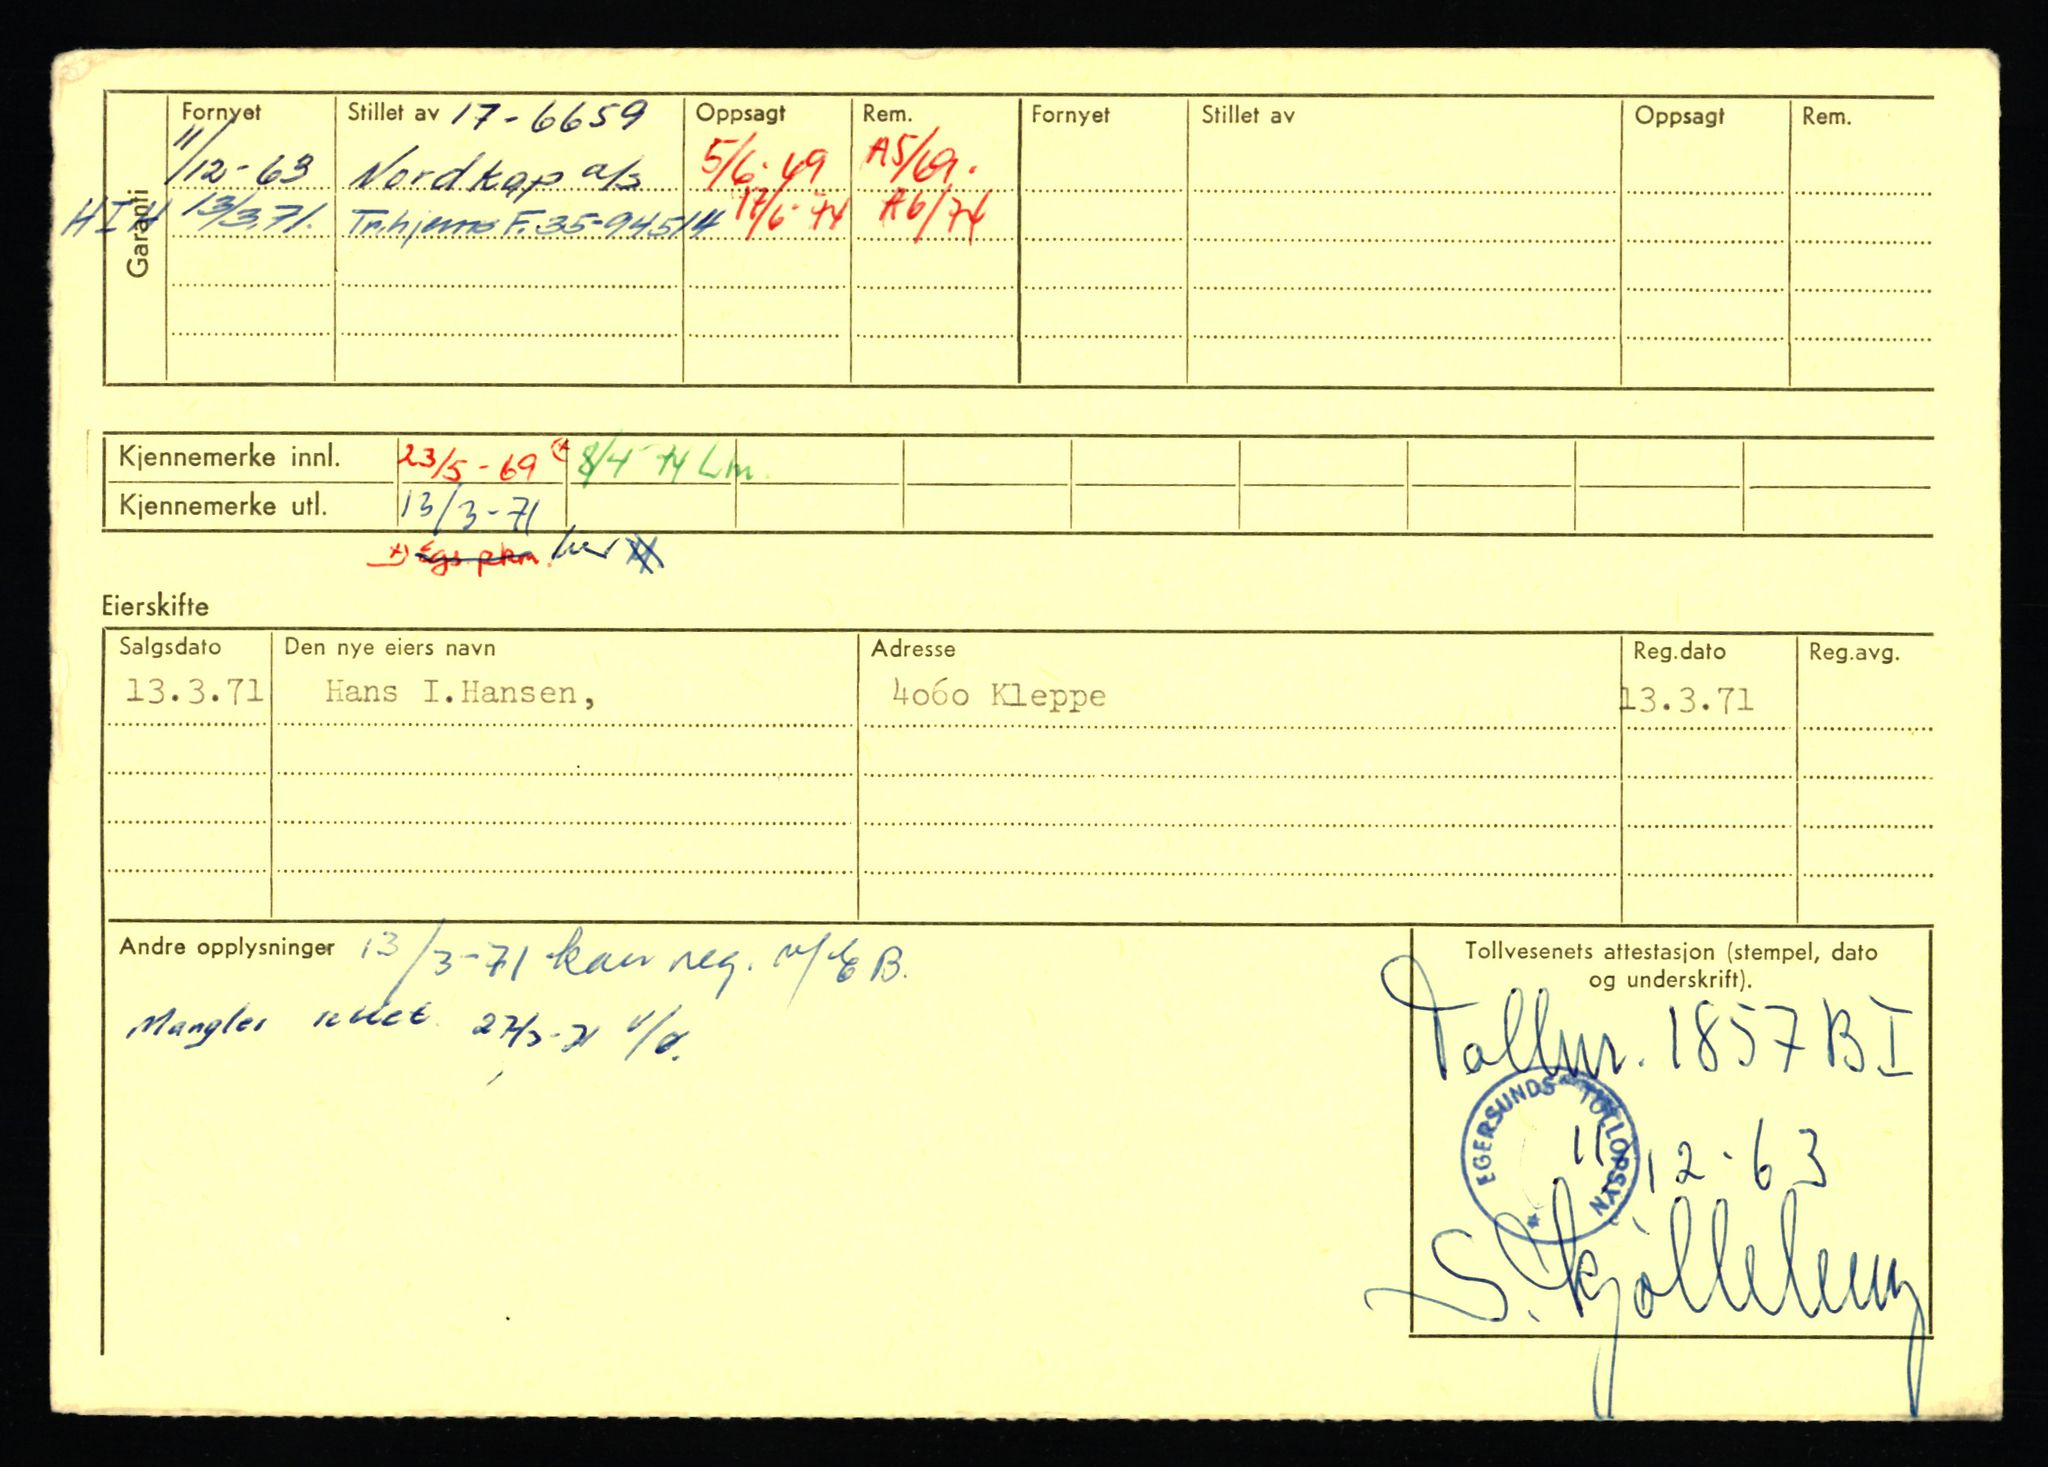 Garanti
Fornyet Stillet av 17-6659 Oppsagt Rem. Fornyet Stillet av Oppsagt Rem.
11/12-63 Nordkap a/s 5/6-69 A5/69.
HIH 13/3.71. Tr.hjems F.35-94514 17/6-74 A6/74
Kjennemerke innl. 23/5-69 x) 8/4-74 Lm.
Kjennemerke utl. 13/3-71
x) Egs. pkm. her
Eierskifte
Salgsdato Den nye eiers navn Adresse Reg.dato Reg.avg.
13.3.71 Hans I.Hansen, 4o6o Kleppe 13.3.71
Andre opplysninger 13/3-71 kan reg. B.
Mangler rettet 27/3-71
Tollvesenets attestasjon (stempel, dato
og underskrift).
Tollnr. 1857 B I
EGERSUNDS TOLLOPPSYN
11.12.63
S. Kjølleberg